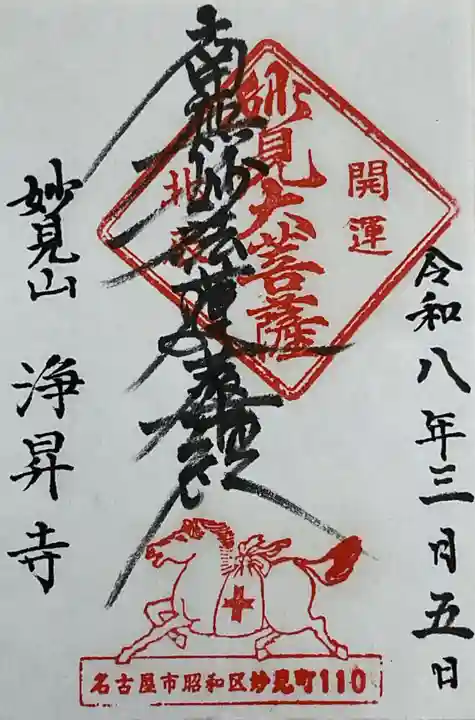 令和八年三月五日
開運
妙見大菩薩
北辰
南無妙法蓮華経
妙見山 浄昇寺
名古屋市昭和区妙見町110